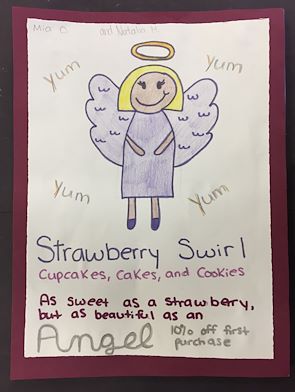 Mia O and Natalia H
Yum Yum
Yum Yum
Strawberry Swirl
Cupcakes, Cakes, and Cookies
As sweet as a strawberry,
but as beautiful as an
Angel 10% off first
purchase